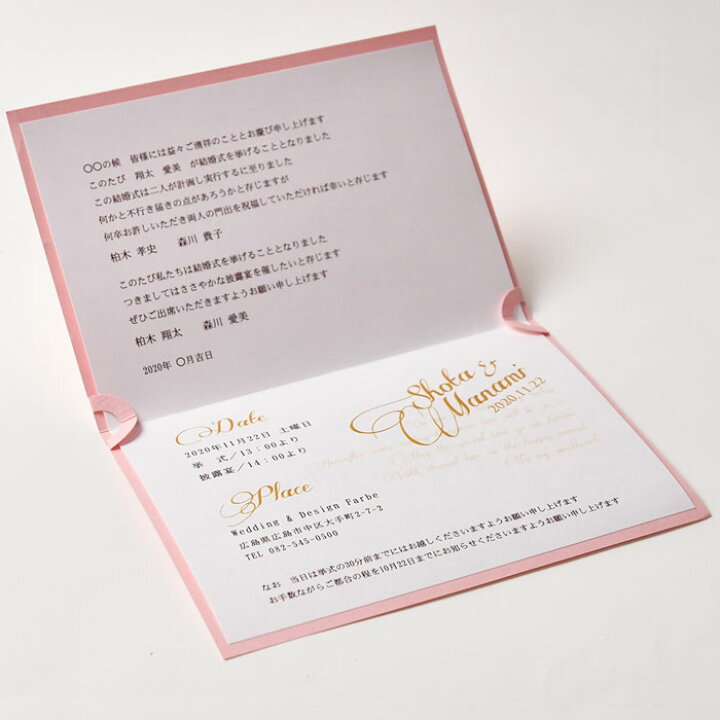 〇〇の候　皆様には益々ご清祥のこととお慶び申し上げます
このたび　翔太　愛美　が結婚式を挙げることとなりました
この結婚式は二人が計画し実行するに至りました
何かと不行き届きの点があろうかと存じますが
何卒お許しいただき両人の門出を祝福していただければ幸いと存じます
柏木 孝史　森川 貴子
このたび私たちは結婚式を挙げることとなりました
つきましてはささやかな披露宴を催したいと存じます
ぜひご出席いただきますようお願い申し上げます
柏木 翔太　森川 愛美
2020年 〇月吉日
Shota &
Manami
2020.11.22
Date
2020年11月22日 土曜日
挙 式/13:00より
披露宴/14:00より
Place
Wedding & Design Farbe
広島県広島市中区大手町2-7-2
TEL 082-545-0500
なお　当日は挙式の30分前までにはお越しくださいますようお願い申し上げます
お手数ながらご都合の程を10月22日までにお知らせくださいますようお願い申し上げます